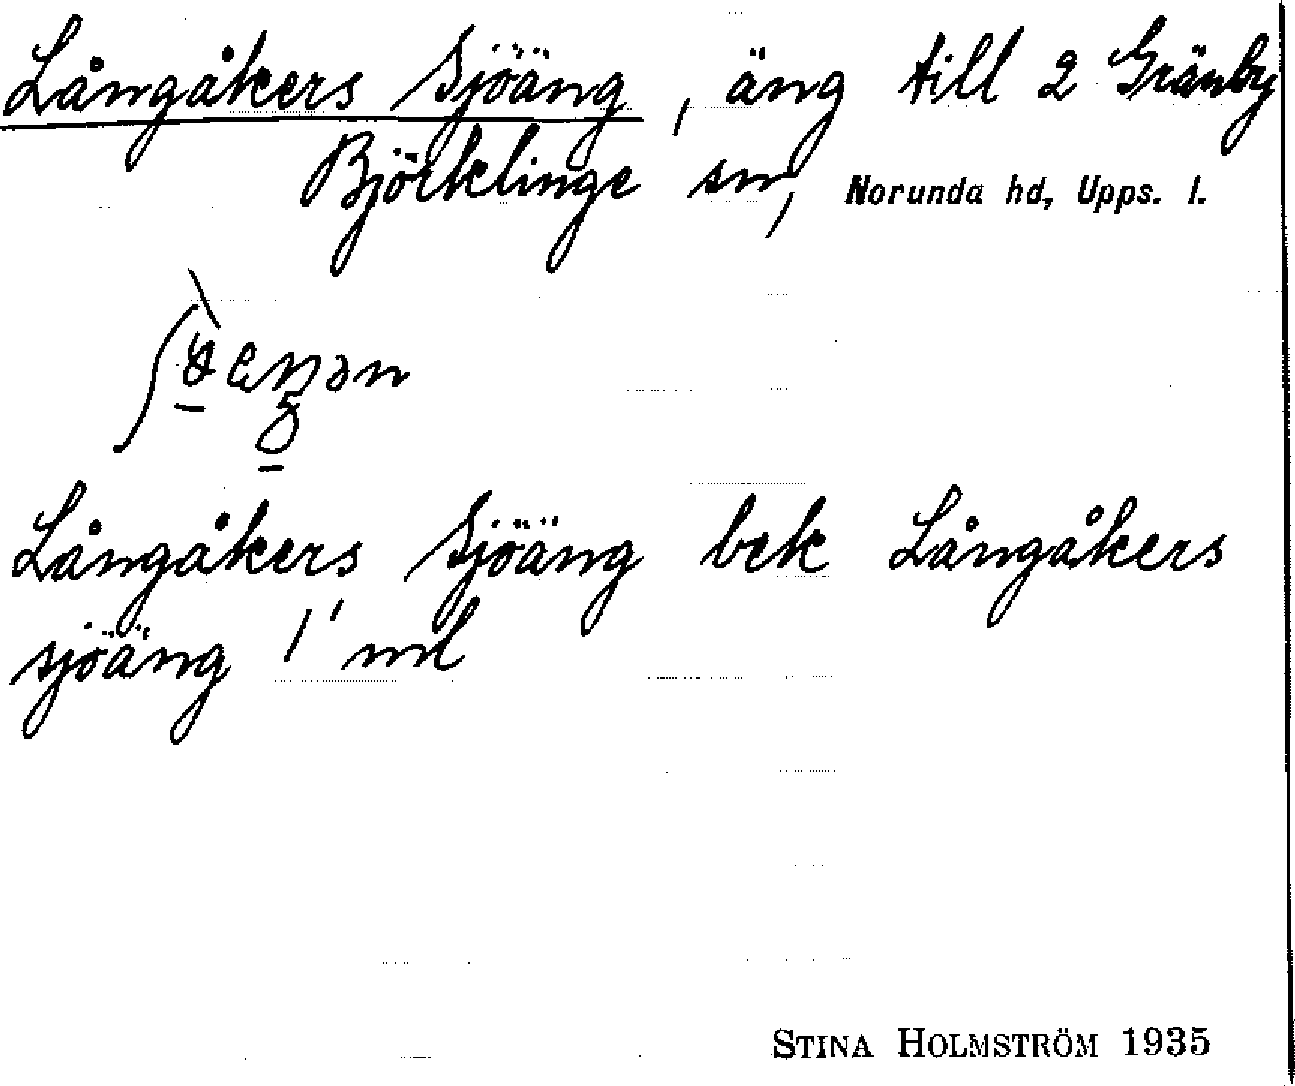 Långåkers sjöäng, äng till 2 Gränby
Björklinge sn, Norunda hd, Upps. l.
Långåkers sjöäng bek Långåkers
sjöäng
STINA HOLMSTRÖM 1935